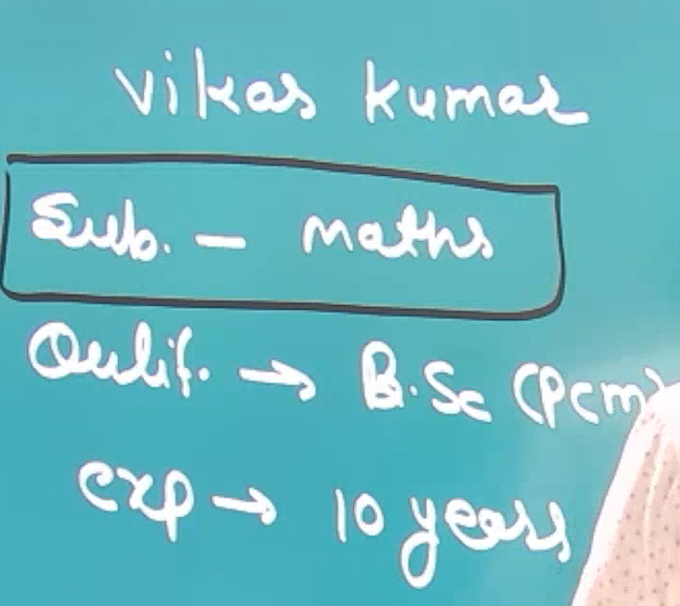 Vikas kumar
Sub. - maths
Qulif. → B.Sc (Pcm)
exp → 10 years